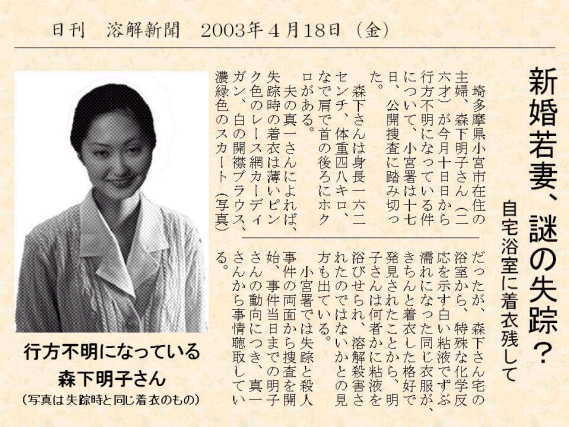 日刊　溶解新聞　2003年４月18日（金）
新婚若妻、謎の失踪？
自宅浴室に着衣残して
埼多摩県小宮市在住の
主婦、森下明子さん（二
六才）が今月十日日から
行方不明になっている件
について、小宮署は十七
日、公開捜査に踏み切っ
た。
森下さんは身長一六二
センチ、体重四八キロ、
なで肩で首の後ろにホク
ロがある。
夫の真一さんによれば、
失踪時の着衣は薄いピン
ク色のレース網カーディ
ガン、白の開襟ブラウス、
濃緑色のスカート（写真）
だったが、森下さん宅の
浴室から、特殊な化学反
応を示す白い粘液でずぶ
濡れになった同じ衣服が、
きちんと着衣した格好で
発見されたことから、明
子さんは何者かに粘液を
浴びせられ、溶解殺害さ
れたのではないかとの見
方も出ている。
小宮署では失踪と殺人
事件の両面から捜査を開
始、事件当日までの明子
さんの動向につき、真一
さんから事情聴取してい
る。
行方不明になっている
森下明子さん
（写真は失踪時と同じ着衣のもの）